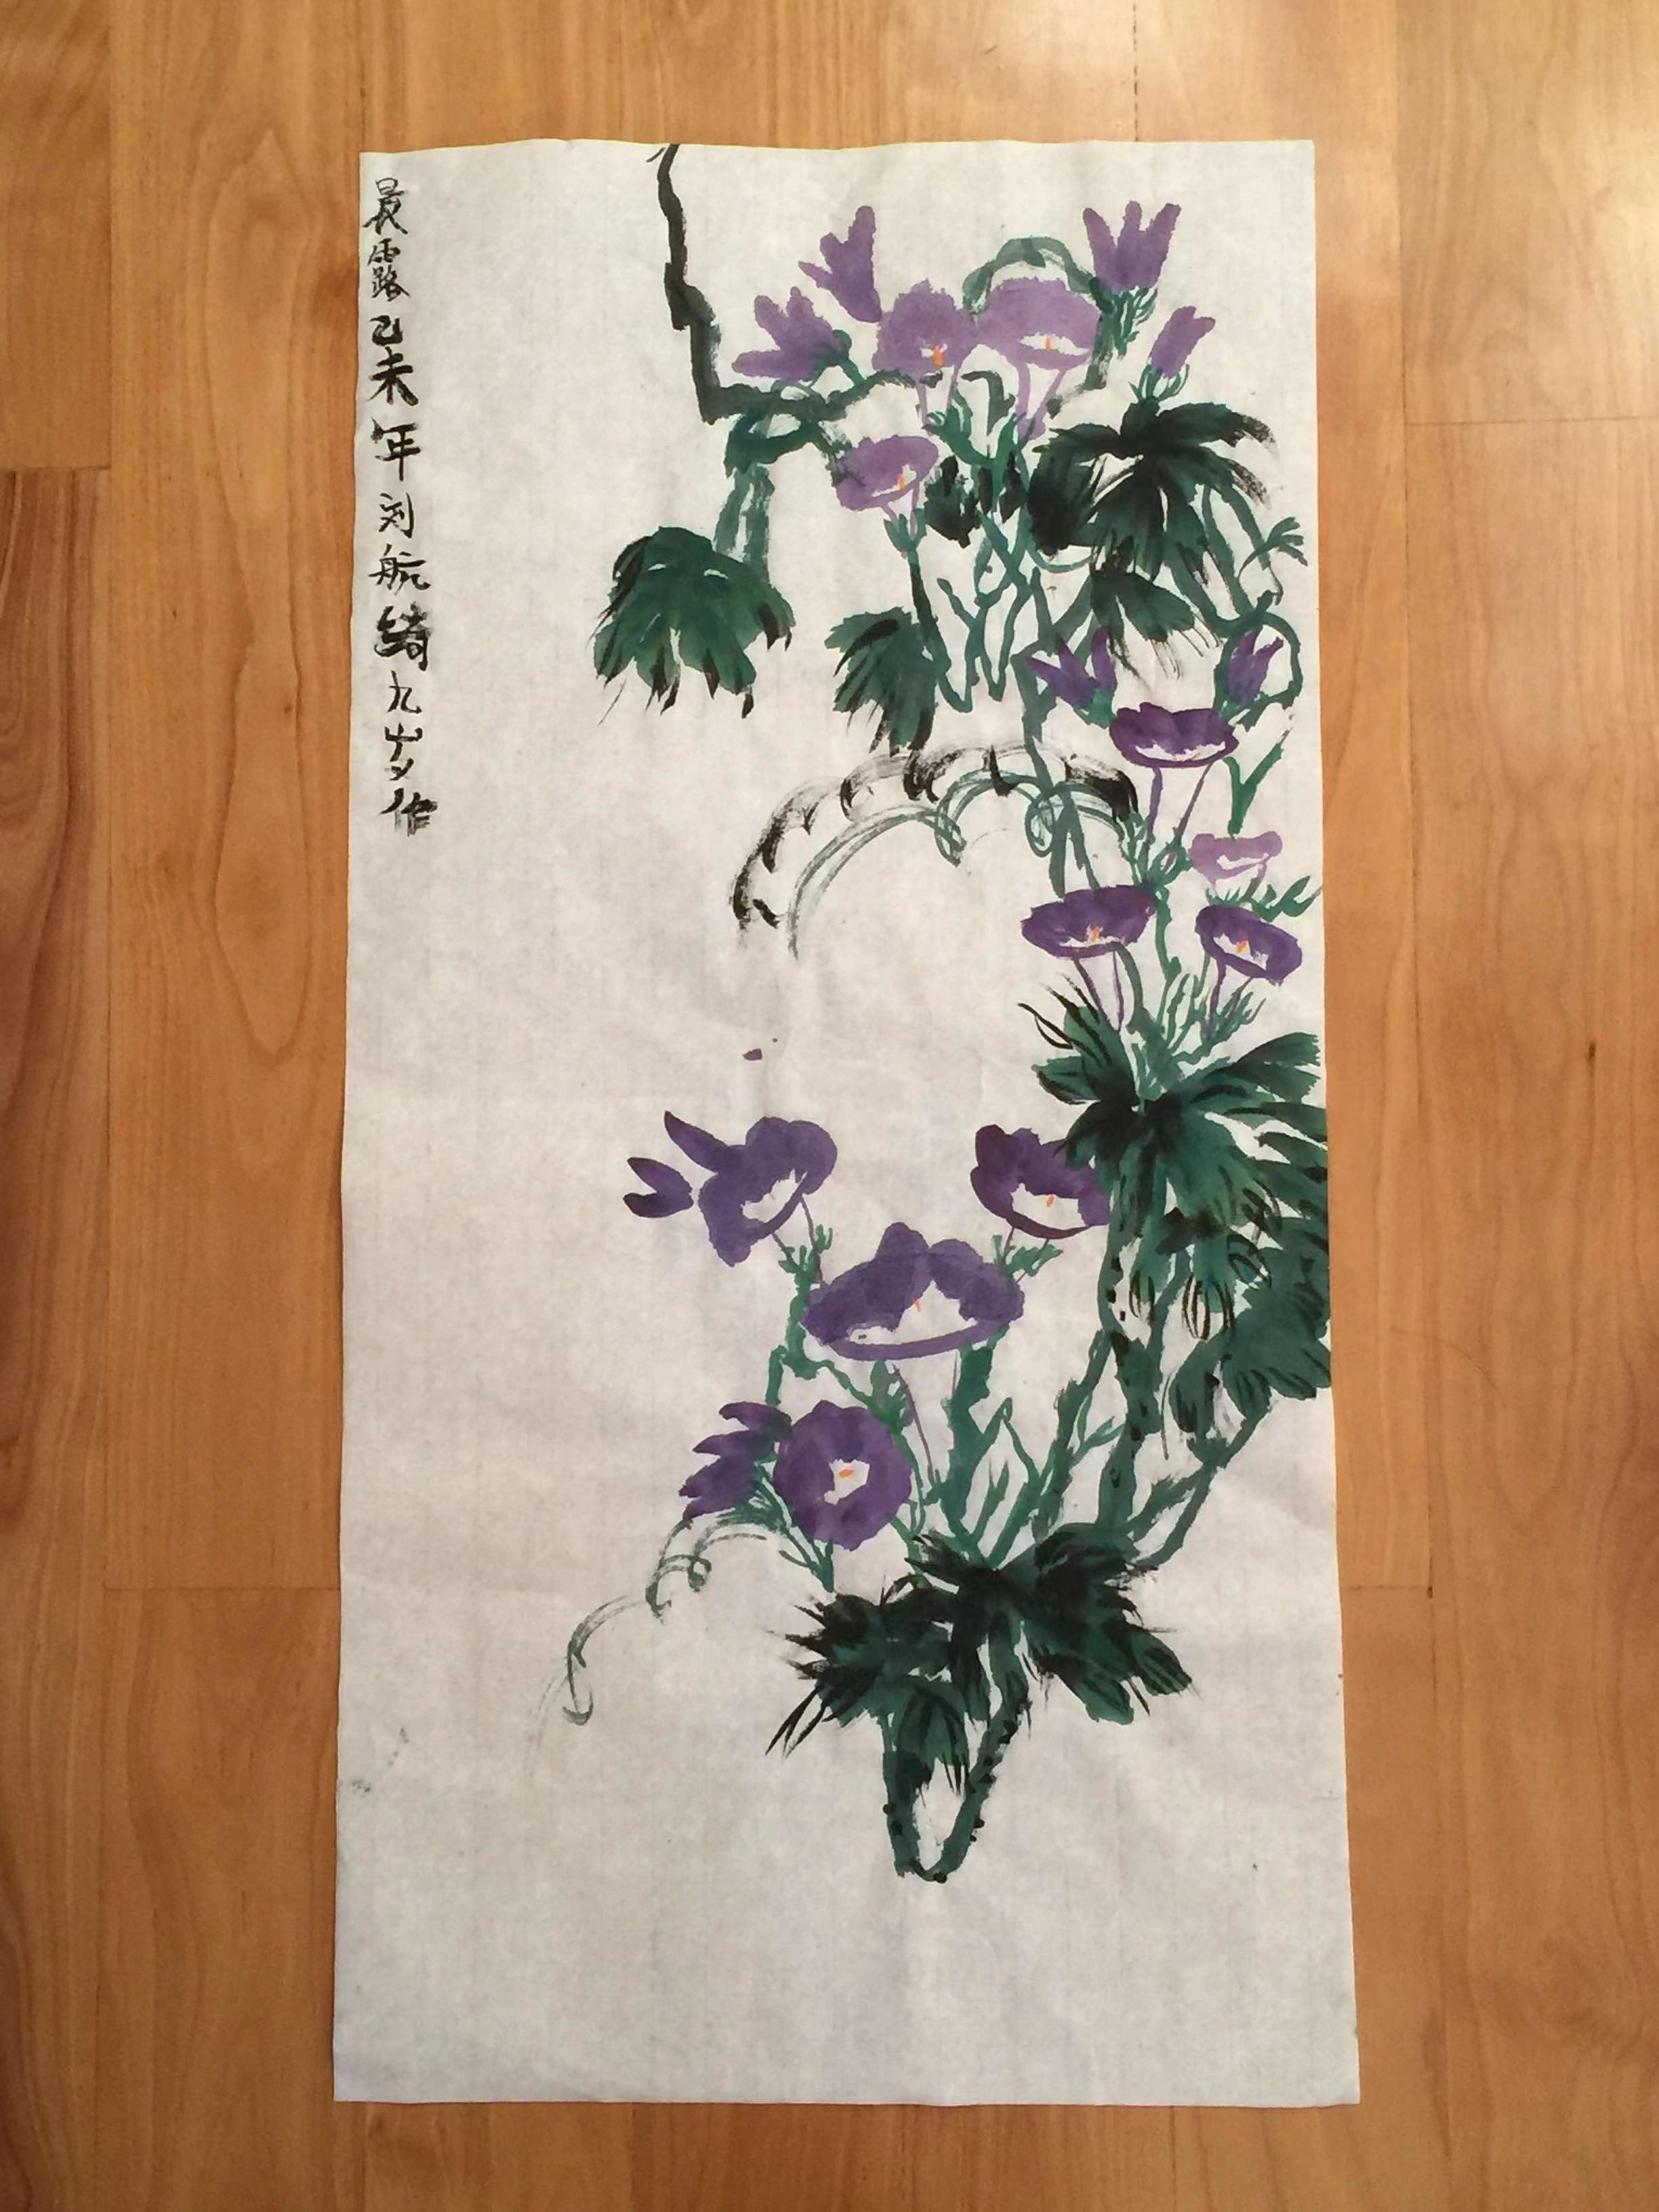 晨露乙未年刘航绮九岁作